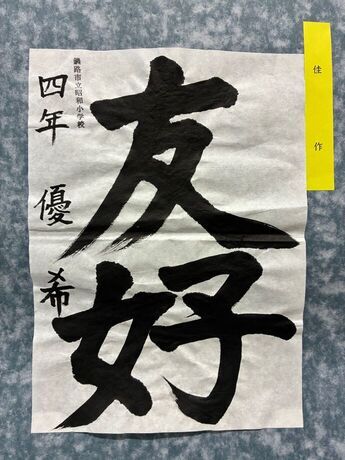 佳作
友好
釧路市立昭和小学校
四年 優希